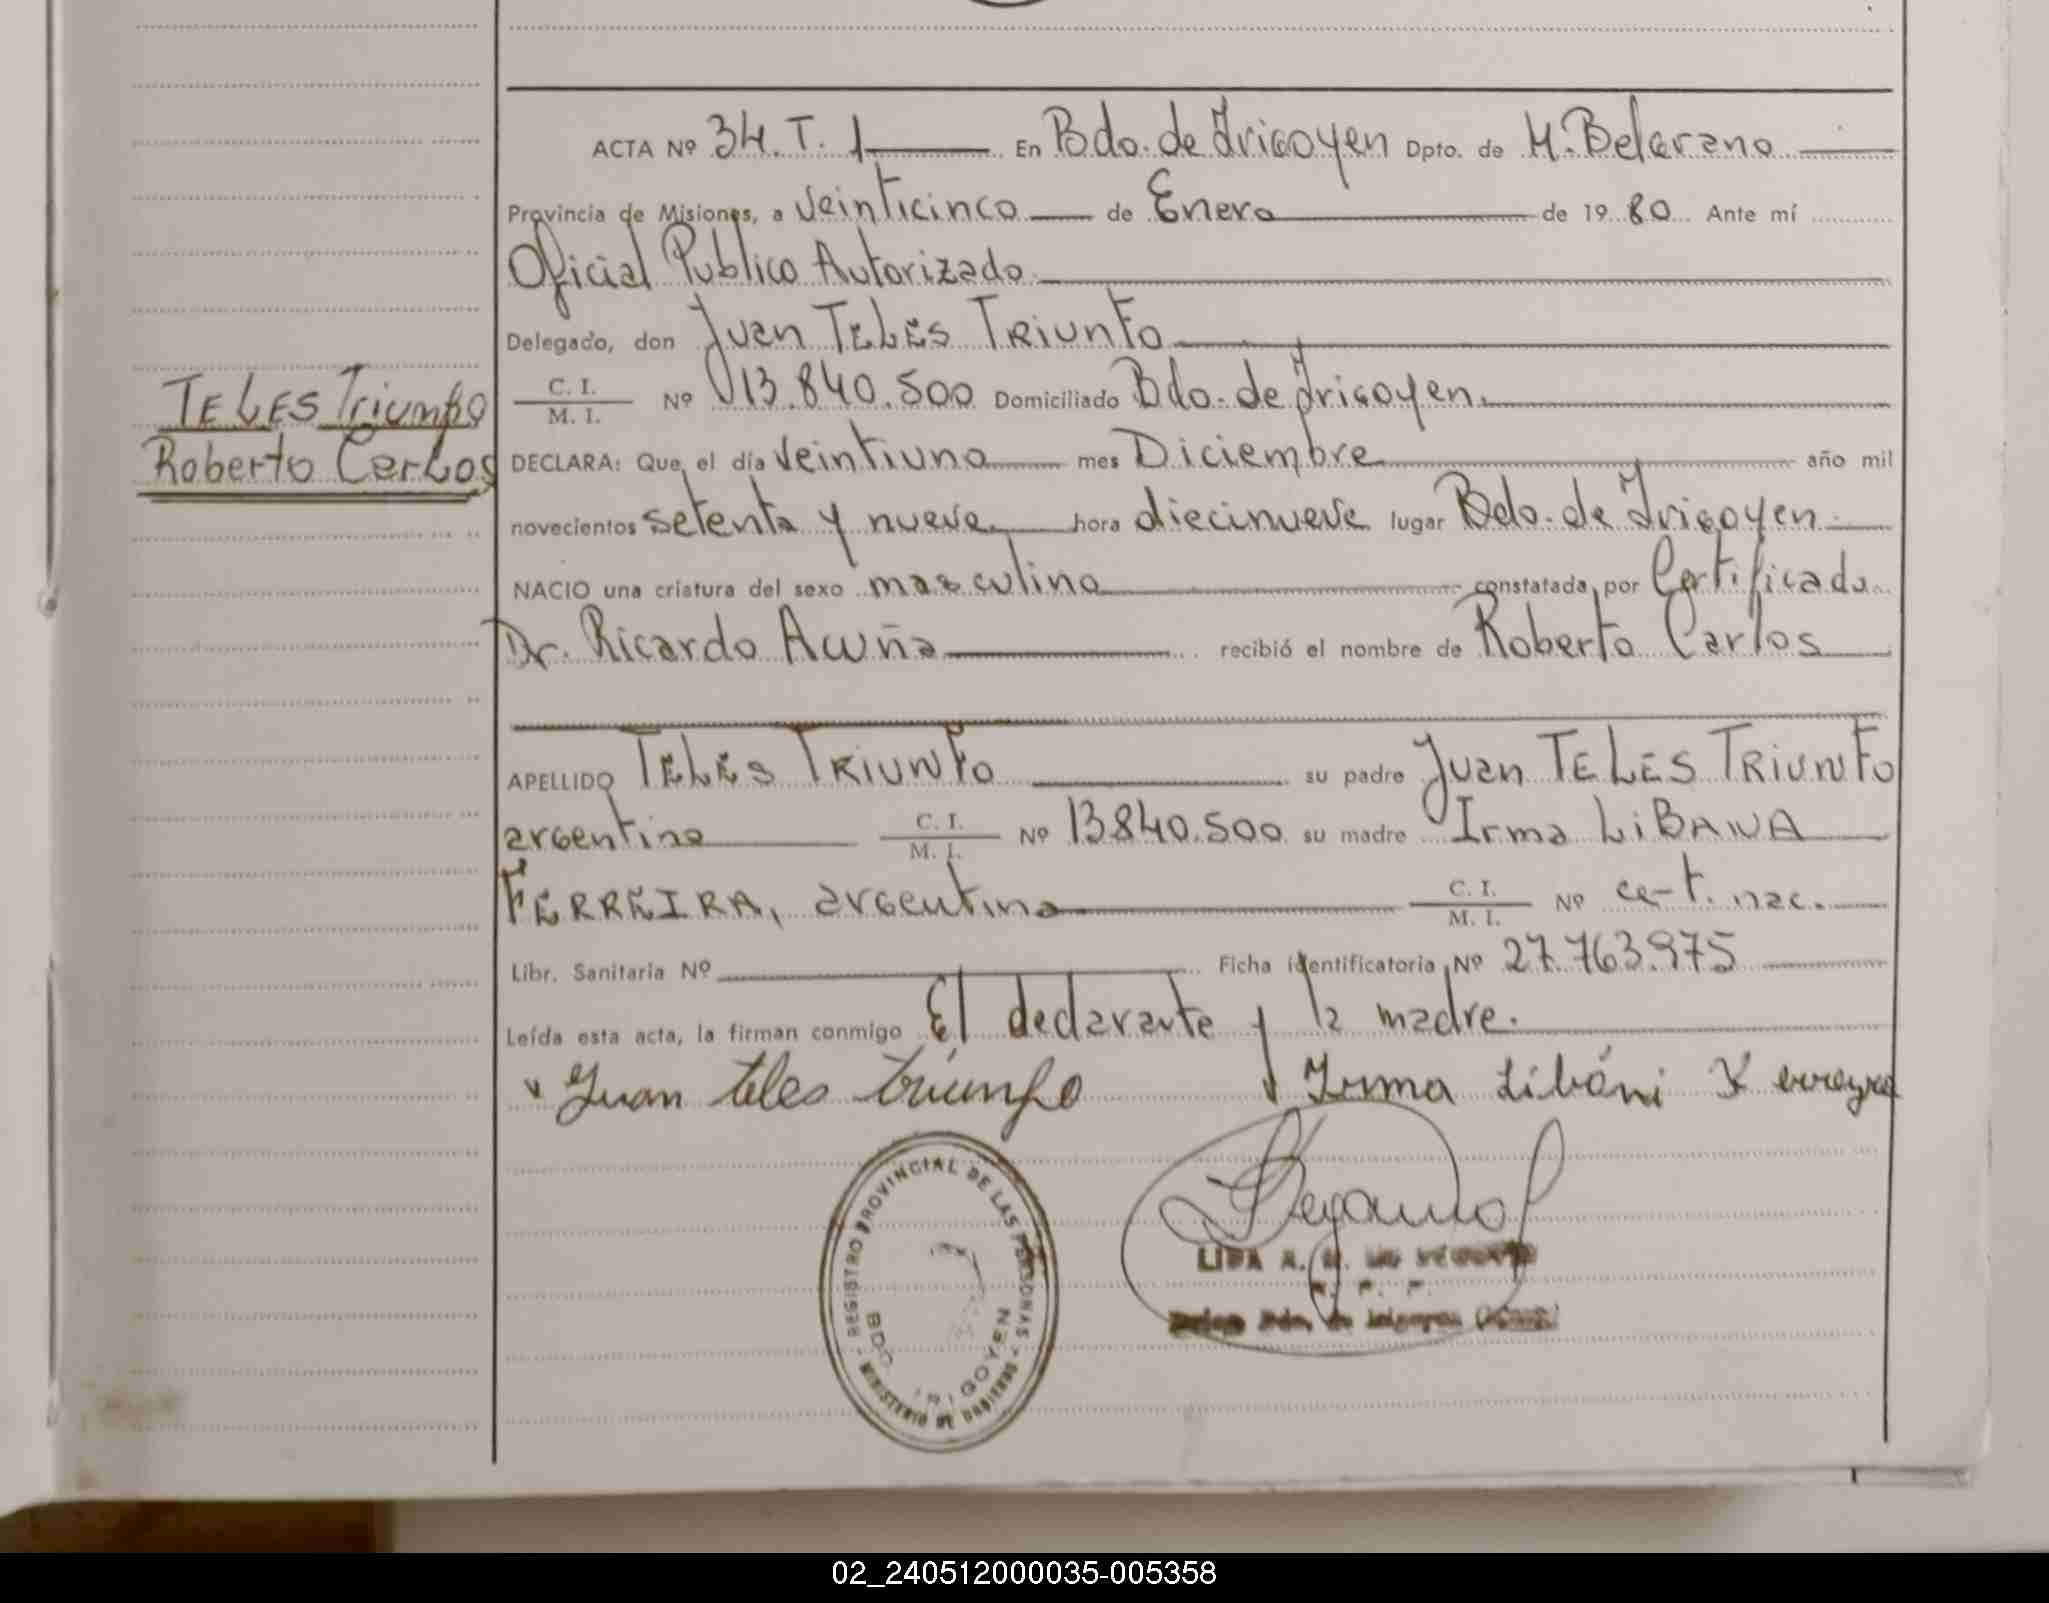 ACTA Nº 34. T. 1 En Bdo. de Irigoyen Dpto. de M. Belgrano
Provincia de Misiones, a veinticinco de Enero de 1980 Ante mí
Oficial Publico Autorizado
Delegado, don Juan TELES TRIUNFO
C. I.
M. I. Nº 13.840.500 Domiciliado Bdo. de Irigoyen.
TELES Triumfo
Roberto Carlos
DECLARA: Que, el día veintiuno mes Diciembre año mil
novecientos setenta y nueve hora diecinueve lugar Bdo. de Irigoyen
NACIO una criatura del sexo masculino constatada por Certificado
Dr. Ricardo Acuña recibió el nombre de Roberto Carlos
APELLIDO TELES TRIUNFO su padre Juan TELES TRIUNFO
argentino C. I. M. I. Nº 13.840.500 su madre Irma LIBANA
FERREIRA, argentina C. I. M. I. Nº cert. nac.
Libr. Sanitaria Nº Ficha identificatoria Nº 27.763.975
Leída esta acta, la firman conmigo El declarante y la madre.
Juan teles triumfo Irma Libáni Ferreyra
REGISTRO PROVINCIAL DE LAS PERSONAS
BDO. IRIGOYEN
MINISTERIO DE GOBIERNO
LIDA A.
02_240512000035-005358